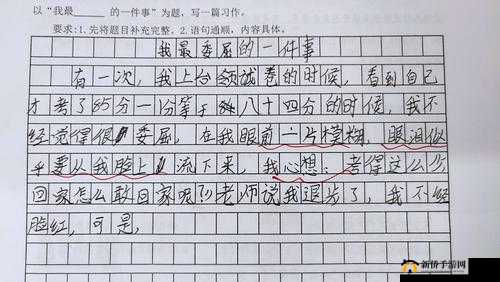 以“我最______的一件事”为题，写一篇习作。
要求：1.先将题目补充完整。2.语句通顺，内容具体。
我最委屈的一件事
有一次，我上台领试卷的时候，看到自己
才考了85分一份等于八十四分的时候，我不
经觉得很委屈，在我眼前一片模糊，眼泪似
乎要从我脸上流下来，我心想：考得这么少
回家怎么敢回家呢？老师说我退步了，我不经
脸红，可是，
新侨手游网